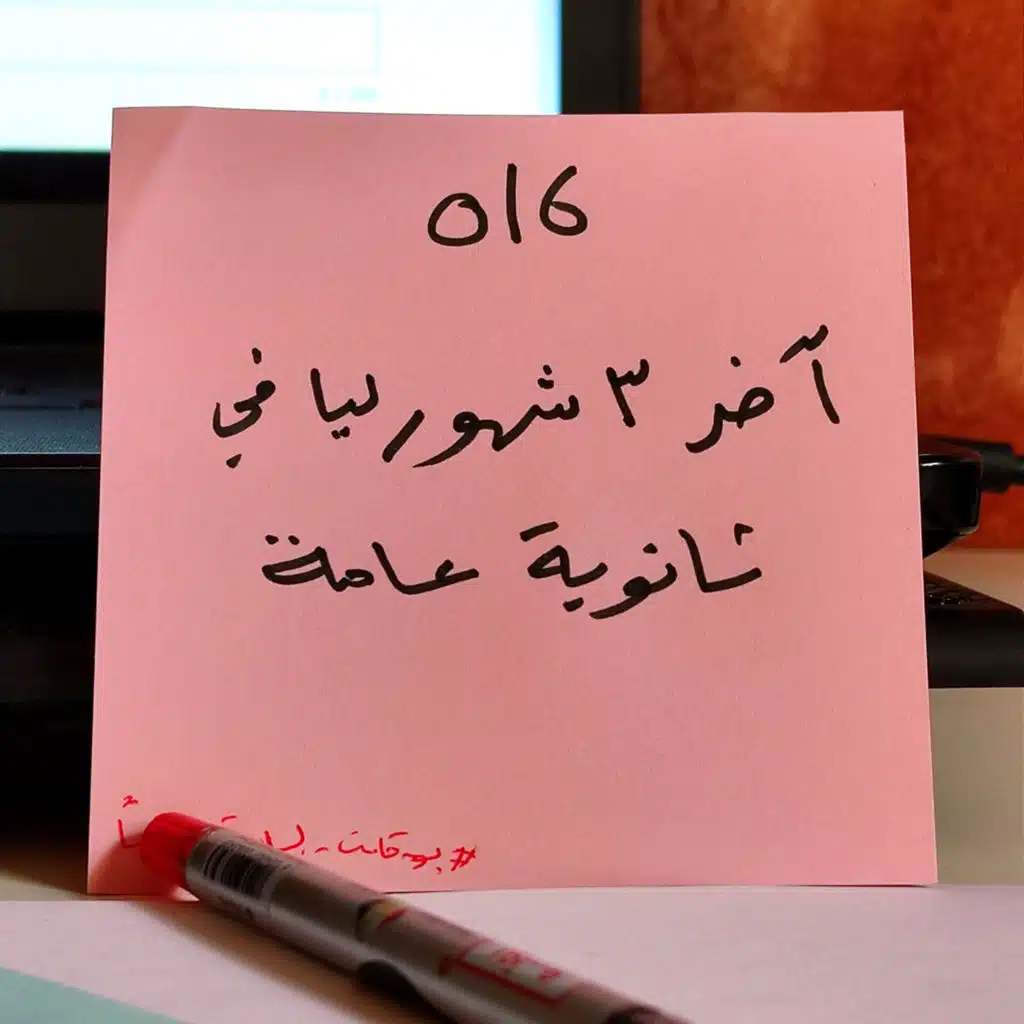 016
آخر ٣ شهور ليا في
ثانوية عامة